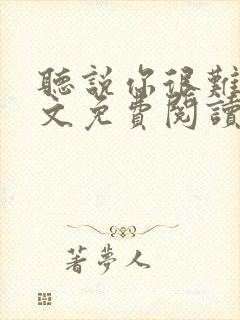 聽說你很難
文免費閱讀
著夢人